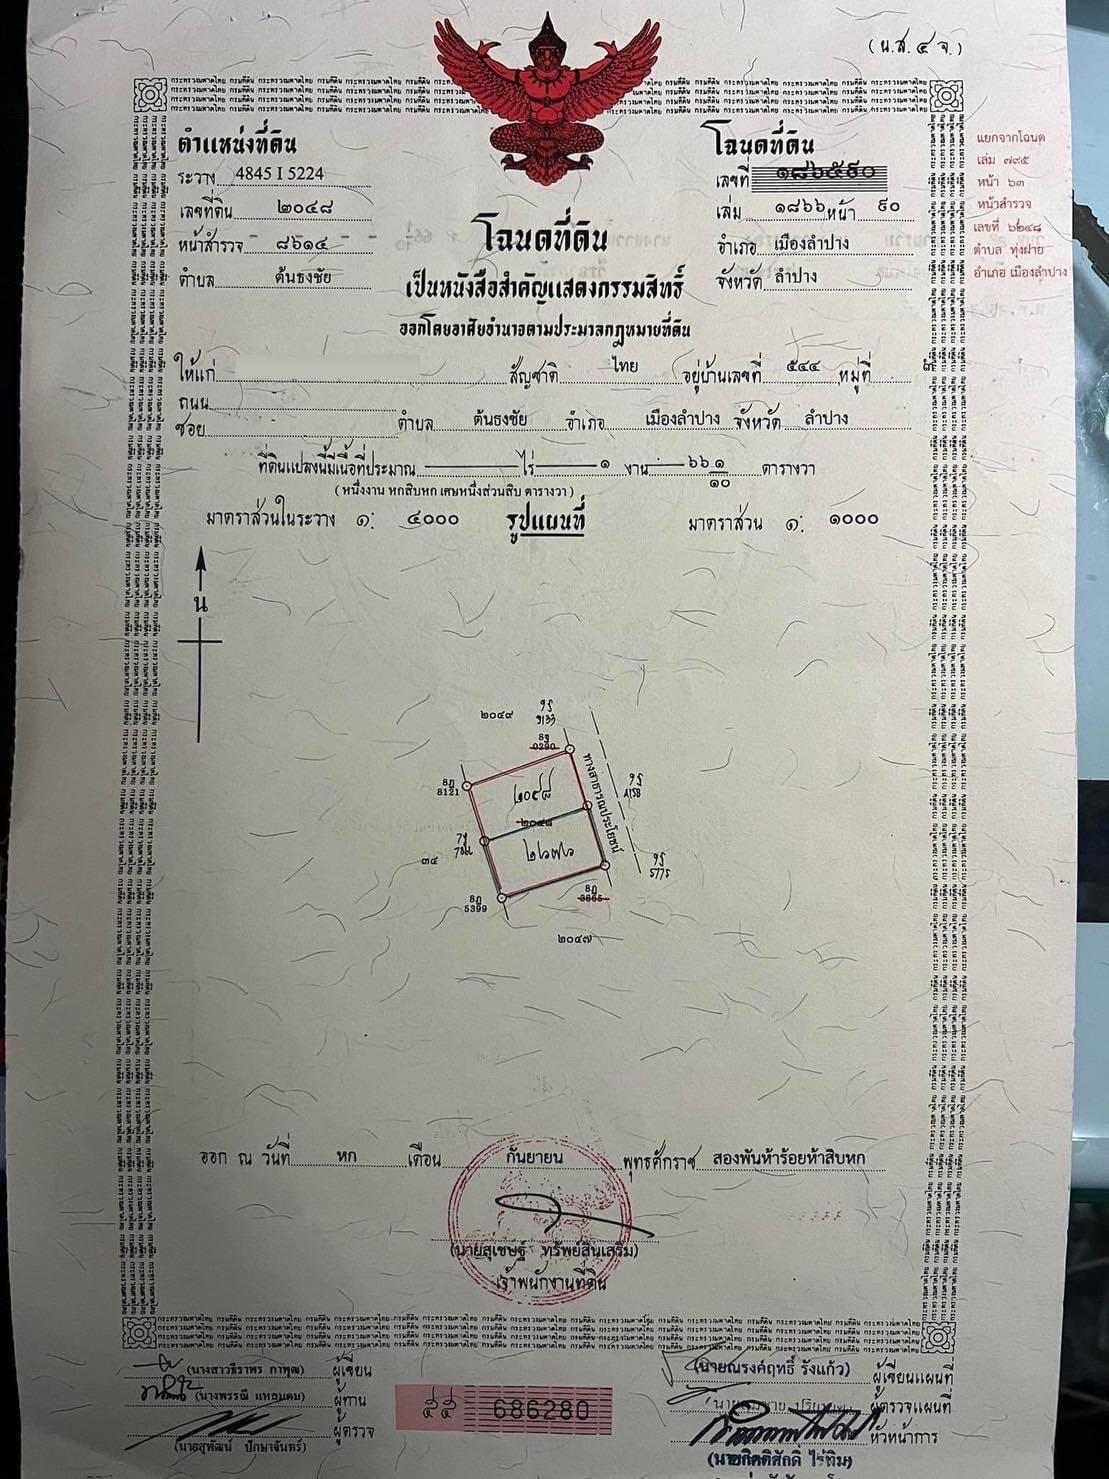 (น.ส.๔ จ.)
ตำแหน่งที่ดิน
ระวาง 4845 I 5224
เลขที่ดิน ๒๐๔๘
หน้าสำรวจ ๘๖๑๔
ตำบล ต้นธงชัย
โฉนดที่ดิน
เลขที่ ๑๘๖๕๙๐
เล่ม ๑๘๖๖ หน้า ๙๐
อำเภอ เมืองลำปาง
จังหวัด ลำปาง
แยกจากโฉนด
เล่ม ๗๙๕
หน้า ๖๓
หน้าสำรวจ
เลขที่ ๖๒๔๘
ตำบล ทุ่งฝาย
อำเภอ เมืองลำปาง
โฉนดที่ดิน
เป็นหนังสือสำคัญแสดงกรรมสิทธิ์
ออกโดยอาศัยอำนาจตามประมวลกฎหมายที่ดิน
ให้แก่ สัญชาติ ไทย อยู่บ้านเลขที่ ๕๔๔ หมู่ที่
ถนน
ซอย ตำบล ต้นธงชัย อำเภอ เมืองลำปาง จังหวัด ลำปาง
ที่ดินแปลงนี้มีเนื้อที่ประมาณ ไร่ ๑ งาน ๖๖ ๑/๑๐ ตารางวา
(หนึ่งงาน หกสิบหก เศษหนึ่งส่วนสิบ ตารางวา)
มาตราส่วนในระวาง ๑: ๔๐๐๐ รูปแผนที่ มาตราส่วน ๑: ๑๐๐๐
น
๒๐๔๙
8ฐ
0290
8ฎ
8121
๒๐๔๘
ทางสาธารณประโยชน์
๓๔
5775
8ฎ
5399
8ฎ
3865
๒๐๔๗
ออก ณ วันที่ หก เดือน กันยายน พุทธศักราช สองพันห้าร้อยห้าสิบหก
(นายสุเชษฐ์ ทรัพย์สินเสริม)
เจ้าพนักงานที่ดิน
(นางสาวธีราพร กาพุฒ) ผู้เขียน
(นางพรรณี แหลมคม) ผู้ทาน
ผู้ตรวจ
(นายสุพัฒน์ ปักษาจันทร์)
๕๕ 686280
(นายณรงค์ฤทธิ์ รังแก้ว) ผู้เขียนแผนที่
ผู้ตรวจแผนที่
หัวหน้าการ
(นายกิตติศักดิ์ ไร่ทิม)